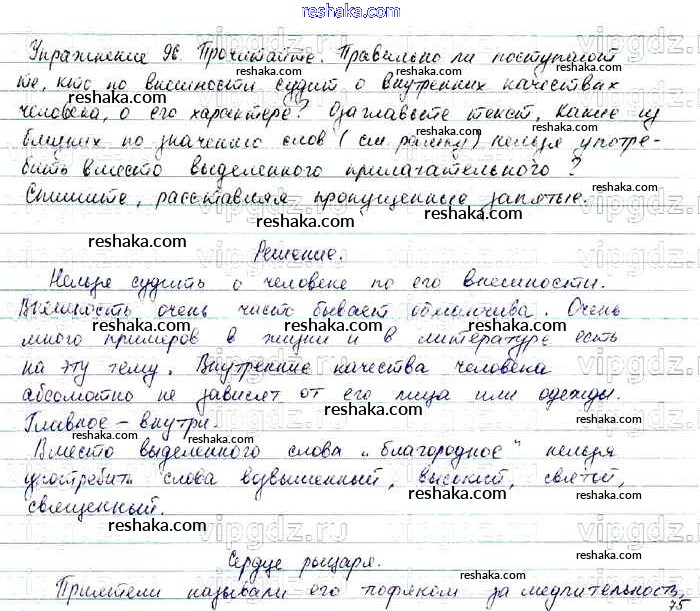 reshaka.com
Упражнение 96. Прочитайте. Правильно ли поступают
те, кто по внешности судит о внутренних качествах
человека, о его характере? Озаглавьте текст, какие из
близких по значению слов (см рамку) нельзя употре-
бить вместо выделенного прилагательного?
Спишите, расставляя пропущенные запятые.
Решение.
Нельзя судить о человеке по его внешности.
Внешность очень часто бывает обманчива. Очень
много примеров в жизни и в литературе есть
на эту тему. Внутренние качества человека
абсолютно не зависят от его лица или одежды.
Главное - внутри.
Вместо выделенного слова "благородное" нельзя
употребить слова возвышенный, высокий, святой,
священный.
reshaka.com
Сердце рыцаря.
Приятели называли его тюфяком за медлительность,
75